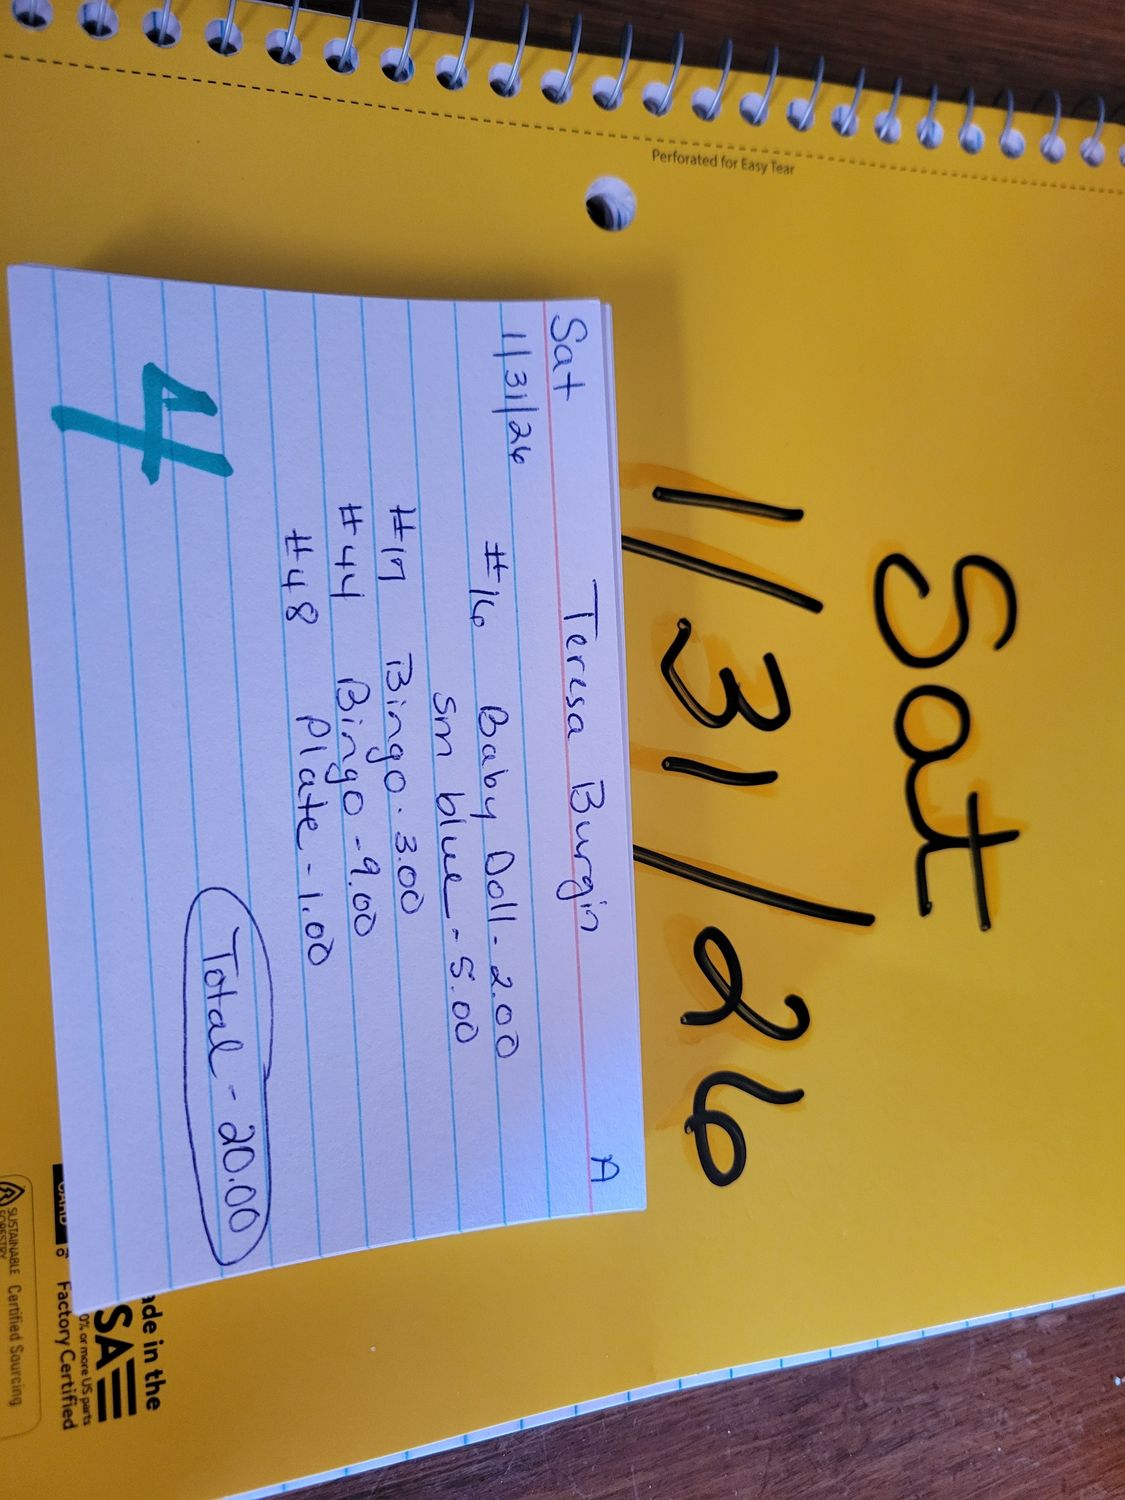 Perforated for Easy Tear
Sat
1/31/26
Sat Teresa Burgin A
1/31/26
#16 Baby Doll - 2.00
Sm blue - 5.00
#17 Bingo - 3.00
#44 Bingo - 9.00
#48 Plate - 1.00
Total - 20.00
4
ade in the
SA
0% or more US parts
Factory Certified
SUSTAINABLE
FORESTRY
Certified Sourcing